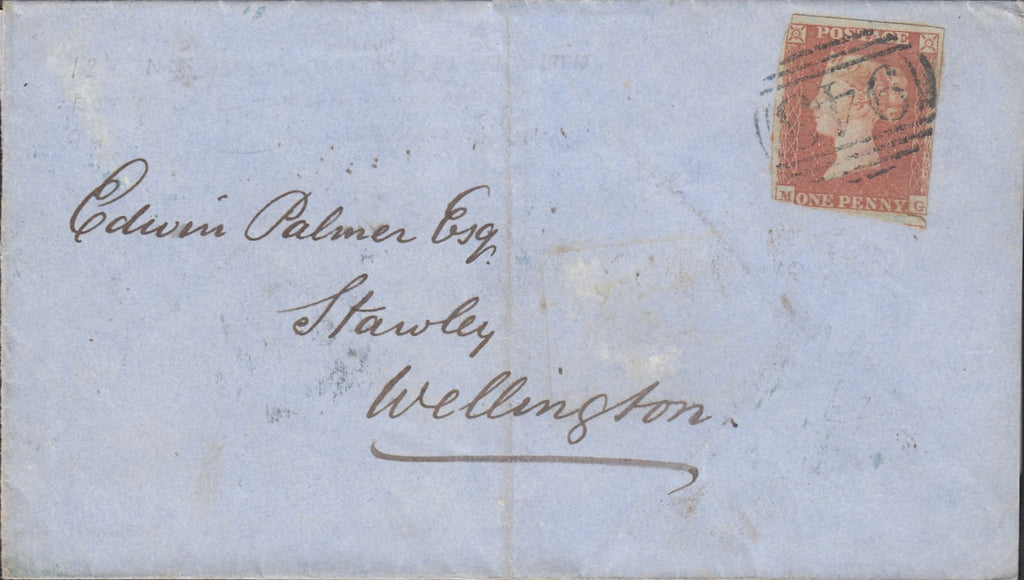 POSTAGE
M ONE PENNY G
Edwin Palmer Esq
Stawley
Wellington.